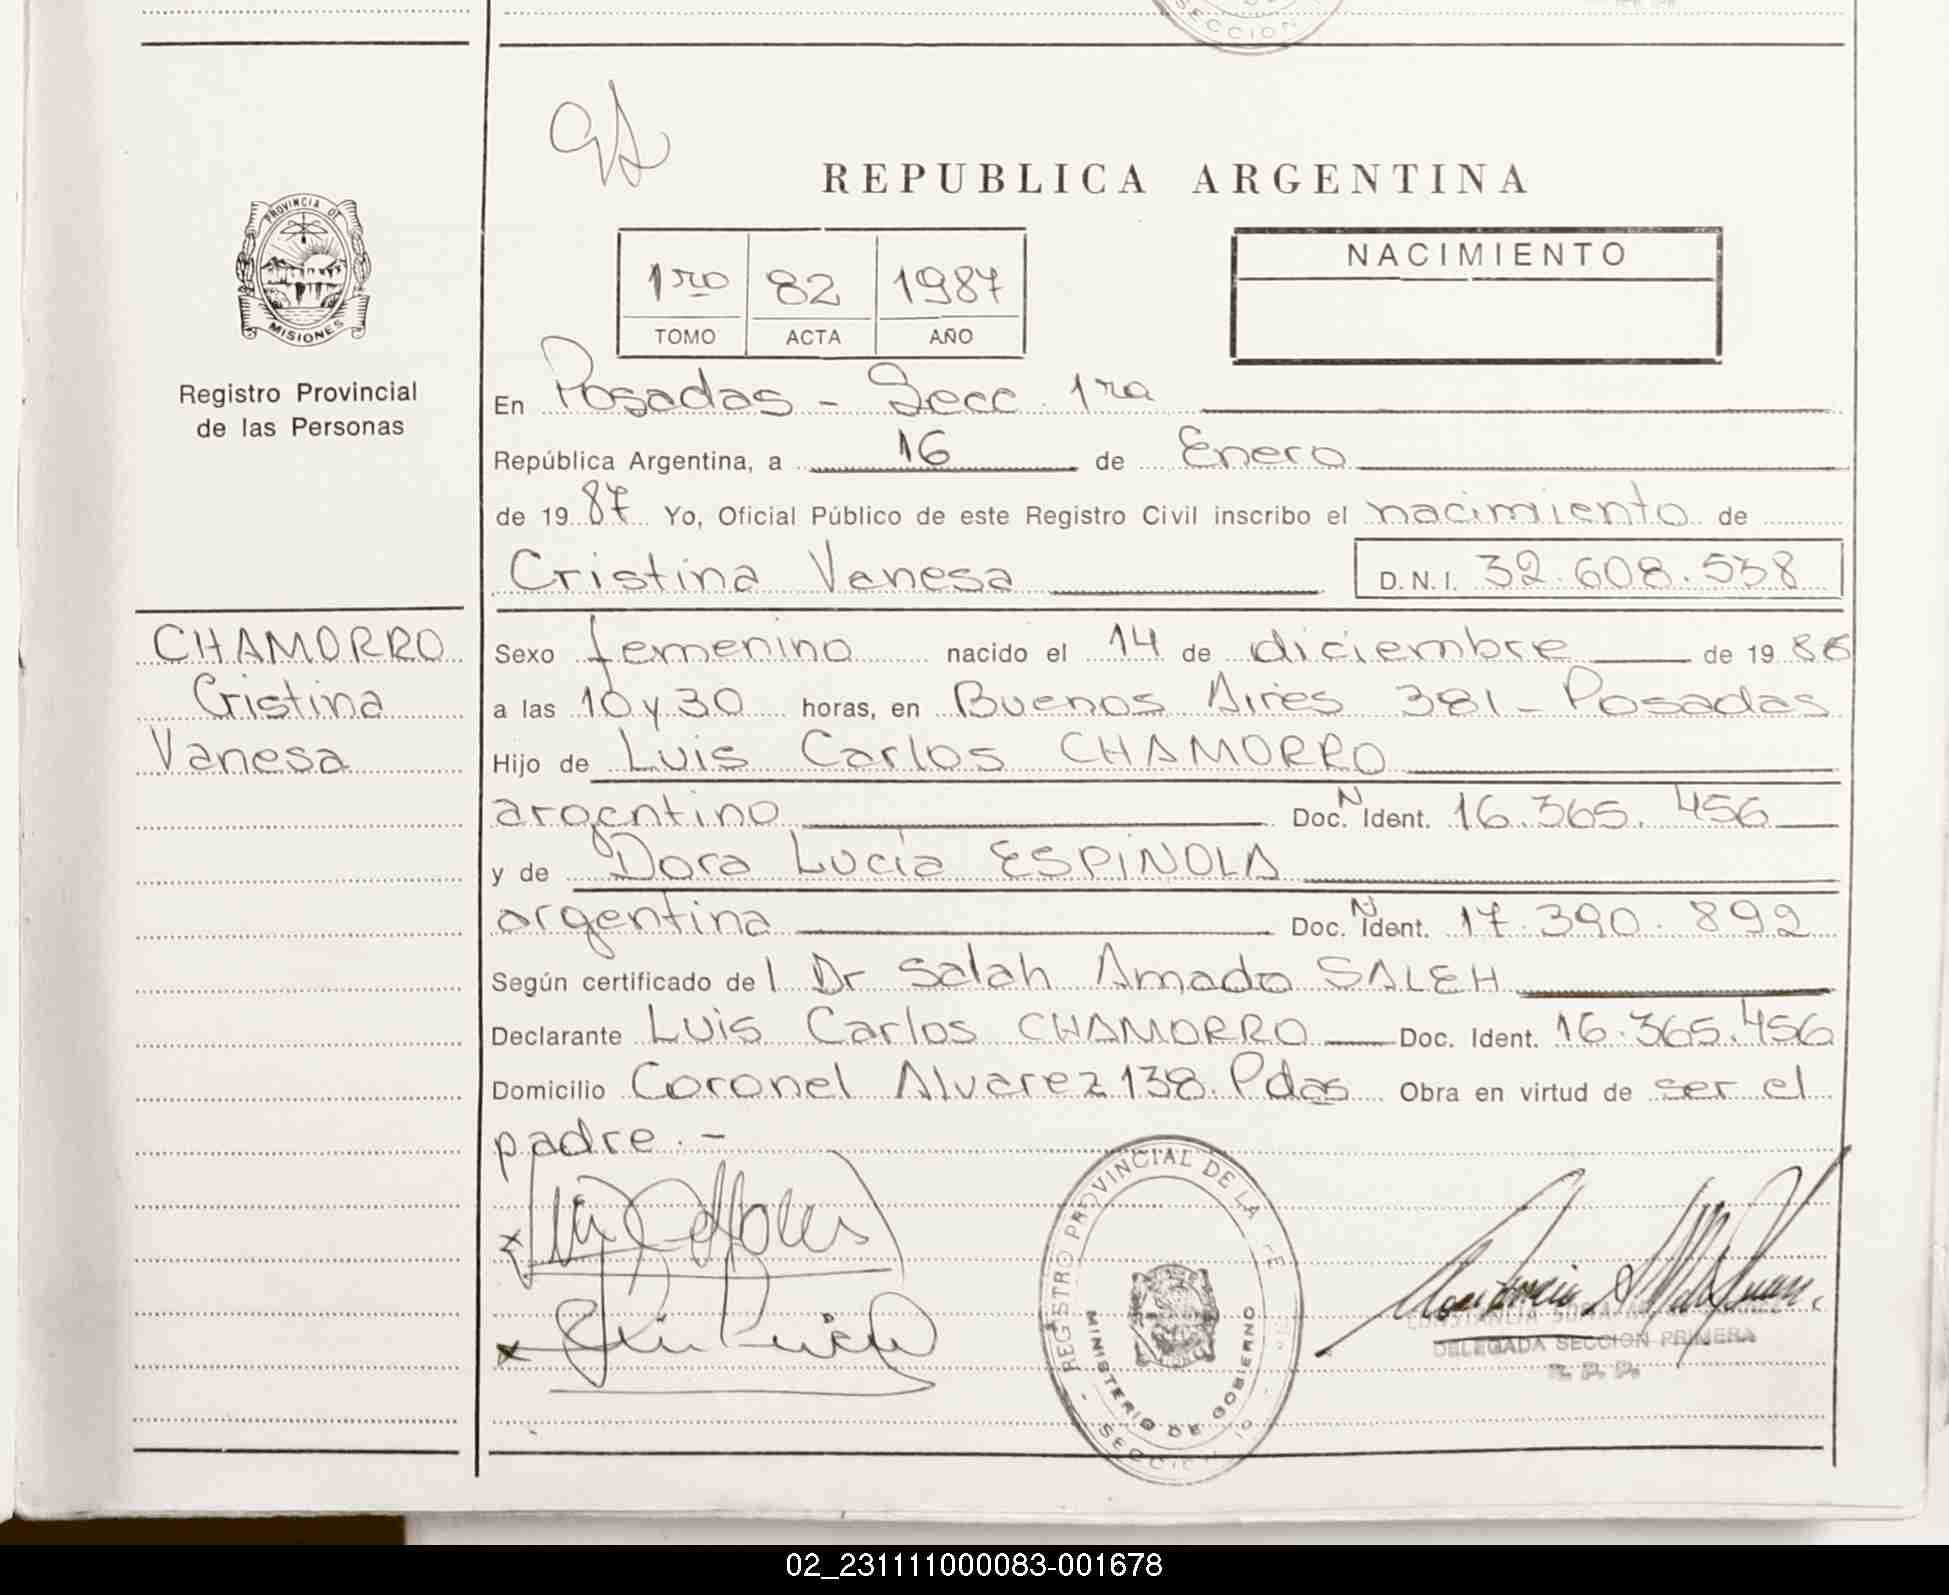 SECCION
REPUBLICA ARGENTINA
PROVINCIA DE
MISIONES
Registro Provincial
de las Personas
1ro 82 1987
TOMO ACTA AÑO
NACIMIENTO
En Posadas - Secc 1ra
República Argentina, a 16 de Enero
de 1987 Yo, Oficial Público de este Registro Civil inscribo el nacimiento de
Cristina Vanesa D.N.I. 32.608.538
CHAMORRO
Cristina
Vanesa
Sexo femenino nacido el 14 de diciembre de 1986
a las 10 y 30 horas, en Buenos Aires 381 - Posadas
Hijo de Luis Carlos CHAMORRO
argentino Doc. N Ident. 16.365.456
y de Dora Lucia ESPINOLA
argentina Doc. N Ident. 17.390.892
Según certificado de l Dr Salah Amado SALEH
Declarante Luis Carlos CHAMORRO Doc. Ident. 16.365.456
Domicilio Coronel Alvarez 138. Pdas Obra en virtud de ser el
padre.-
REGISTRO PROVINCIAL DE LA
MINISTERIO DE GOBIERNO
DELEGADA SECCION PRIMERA
R. P. P.
02_231111000083-001678